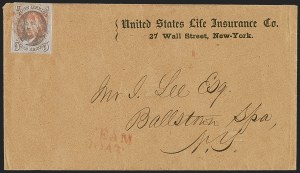 United States Life Insurance Co.
27 Wall Street, New-York.
Mr J. Lee Esq.
Ballstown Spa,
N.Y.